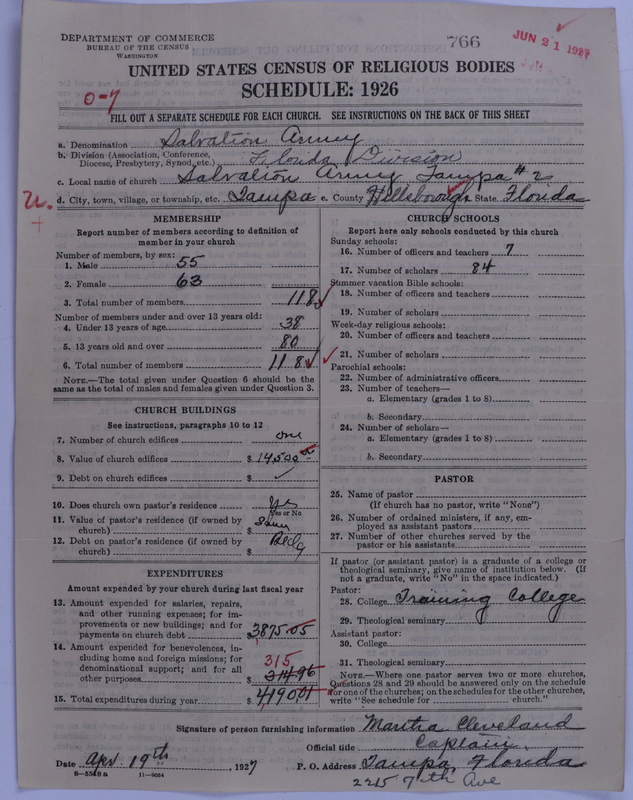 DEPARTMENT OF COMMERCE
BUREAU OF THE CENSUS
WASHINGTON
766
JUN 21 1927
UNITED STATES CENSUS OF RELIGIOUS BODIES
SCHEDULE: 1926
0-7
FILL OUT A SEPARATE SCHEDULE FOR EACH CHURCH. SEE INSTRUCTIONS ON THE BACK OF THIS SHEET
a. Denomination Salvation Army
b. Division (Association, Conference, Diocese, Presbytery, Synod, etc.) Florida Division
c. Local name of church Salvation Army Tampa #2
U. d. City, town, village, or township, etc. Tampa e. County Hillsborough State Florida
+
MEMBERSHIP
Report number of members according to definition of
member in your church
Number of members, by sex:
1. Male 55
2. Female 63
3. Total number of members 118
Number of members under and over 13 years old:
4. Under 13 years of age 38
5. 13 years old and over 80
6. Total number of members 118
NOTE.—The total given under Question 6 should be the
same as the total of males and females given under Question 3.
CHURCH BUILDINGS
See instructions, paragraphs 10 to 12
7. Number of church edifices one
8. Value of church edifices $ 14500
9. Debt on church edifices $
10. Does church own pastor's residence Yes
Yes or No
11. Value of pastor's residence (if owned by
church) $ Same
12. Debt on pastor's residence (if owned by
church) $ Bldg
EXPENDITURES
Amount expended by your church during last fiscal year
13. Amount expended for salaries, repairs,
and other running expenses; for im-
provements or new buildings; and for
payments on church debt $ 3875.05
14. Amount expended for benevolences, in-
cluding home and foreign missions; for
denominational support; and for all
other purposes 315
$ 314 96
15. Total expenditures during year $ 4190 01
CHURCH SCHOOLS
Report here only schools conducted by this church
Sunday schools:
16. Number of officers and teachers 7
17. Number of scholars 84
Summer vacation Bible schools:
18. Number of officers and teachers
19. Number of scholars
Week-day religious schools:
20. Number of officers and teachers
21. Number of scholars
Parochial schools:
22. Number of administrative officers
23. Number of teachers—
a. Elementary (grades 1 to 8)
b. Secondary
24. Number of scholars—
a. Elementary (grades 1 to 8)
b. Secondary
PASTOR
25. Name of pastor
(If church has no pastor, write "None")
26. Number of ordained ministers, if any, em-
ployed as assistant pastors
27. Number of other churches served by the
pastor or his assistants
If pastor (or assistant pastor) is a graduate of a college or
theological seminary, give name of institution below. (If
not a graduate, write "No" in the space indicated.)
Pastor:
28. College Training College
29. Theological seminary
Assistant pastor:
30. College
31. Theological seminary
NOTE.—Where one pastor serves two or more churches,
Questions 28 and 29 should be answered only on the schedule
for one of the churches; on the schedules for the other churches,
write "See schedule for church."
Signature of person furnishing information Martha Cleveland
Official title Captain
Date Apr. 19th, 1927 P. O. Address Tampa, Florida
8-5318 a 11-9054
2215 7th Ave